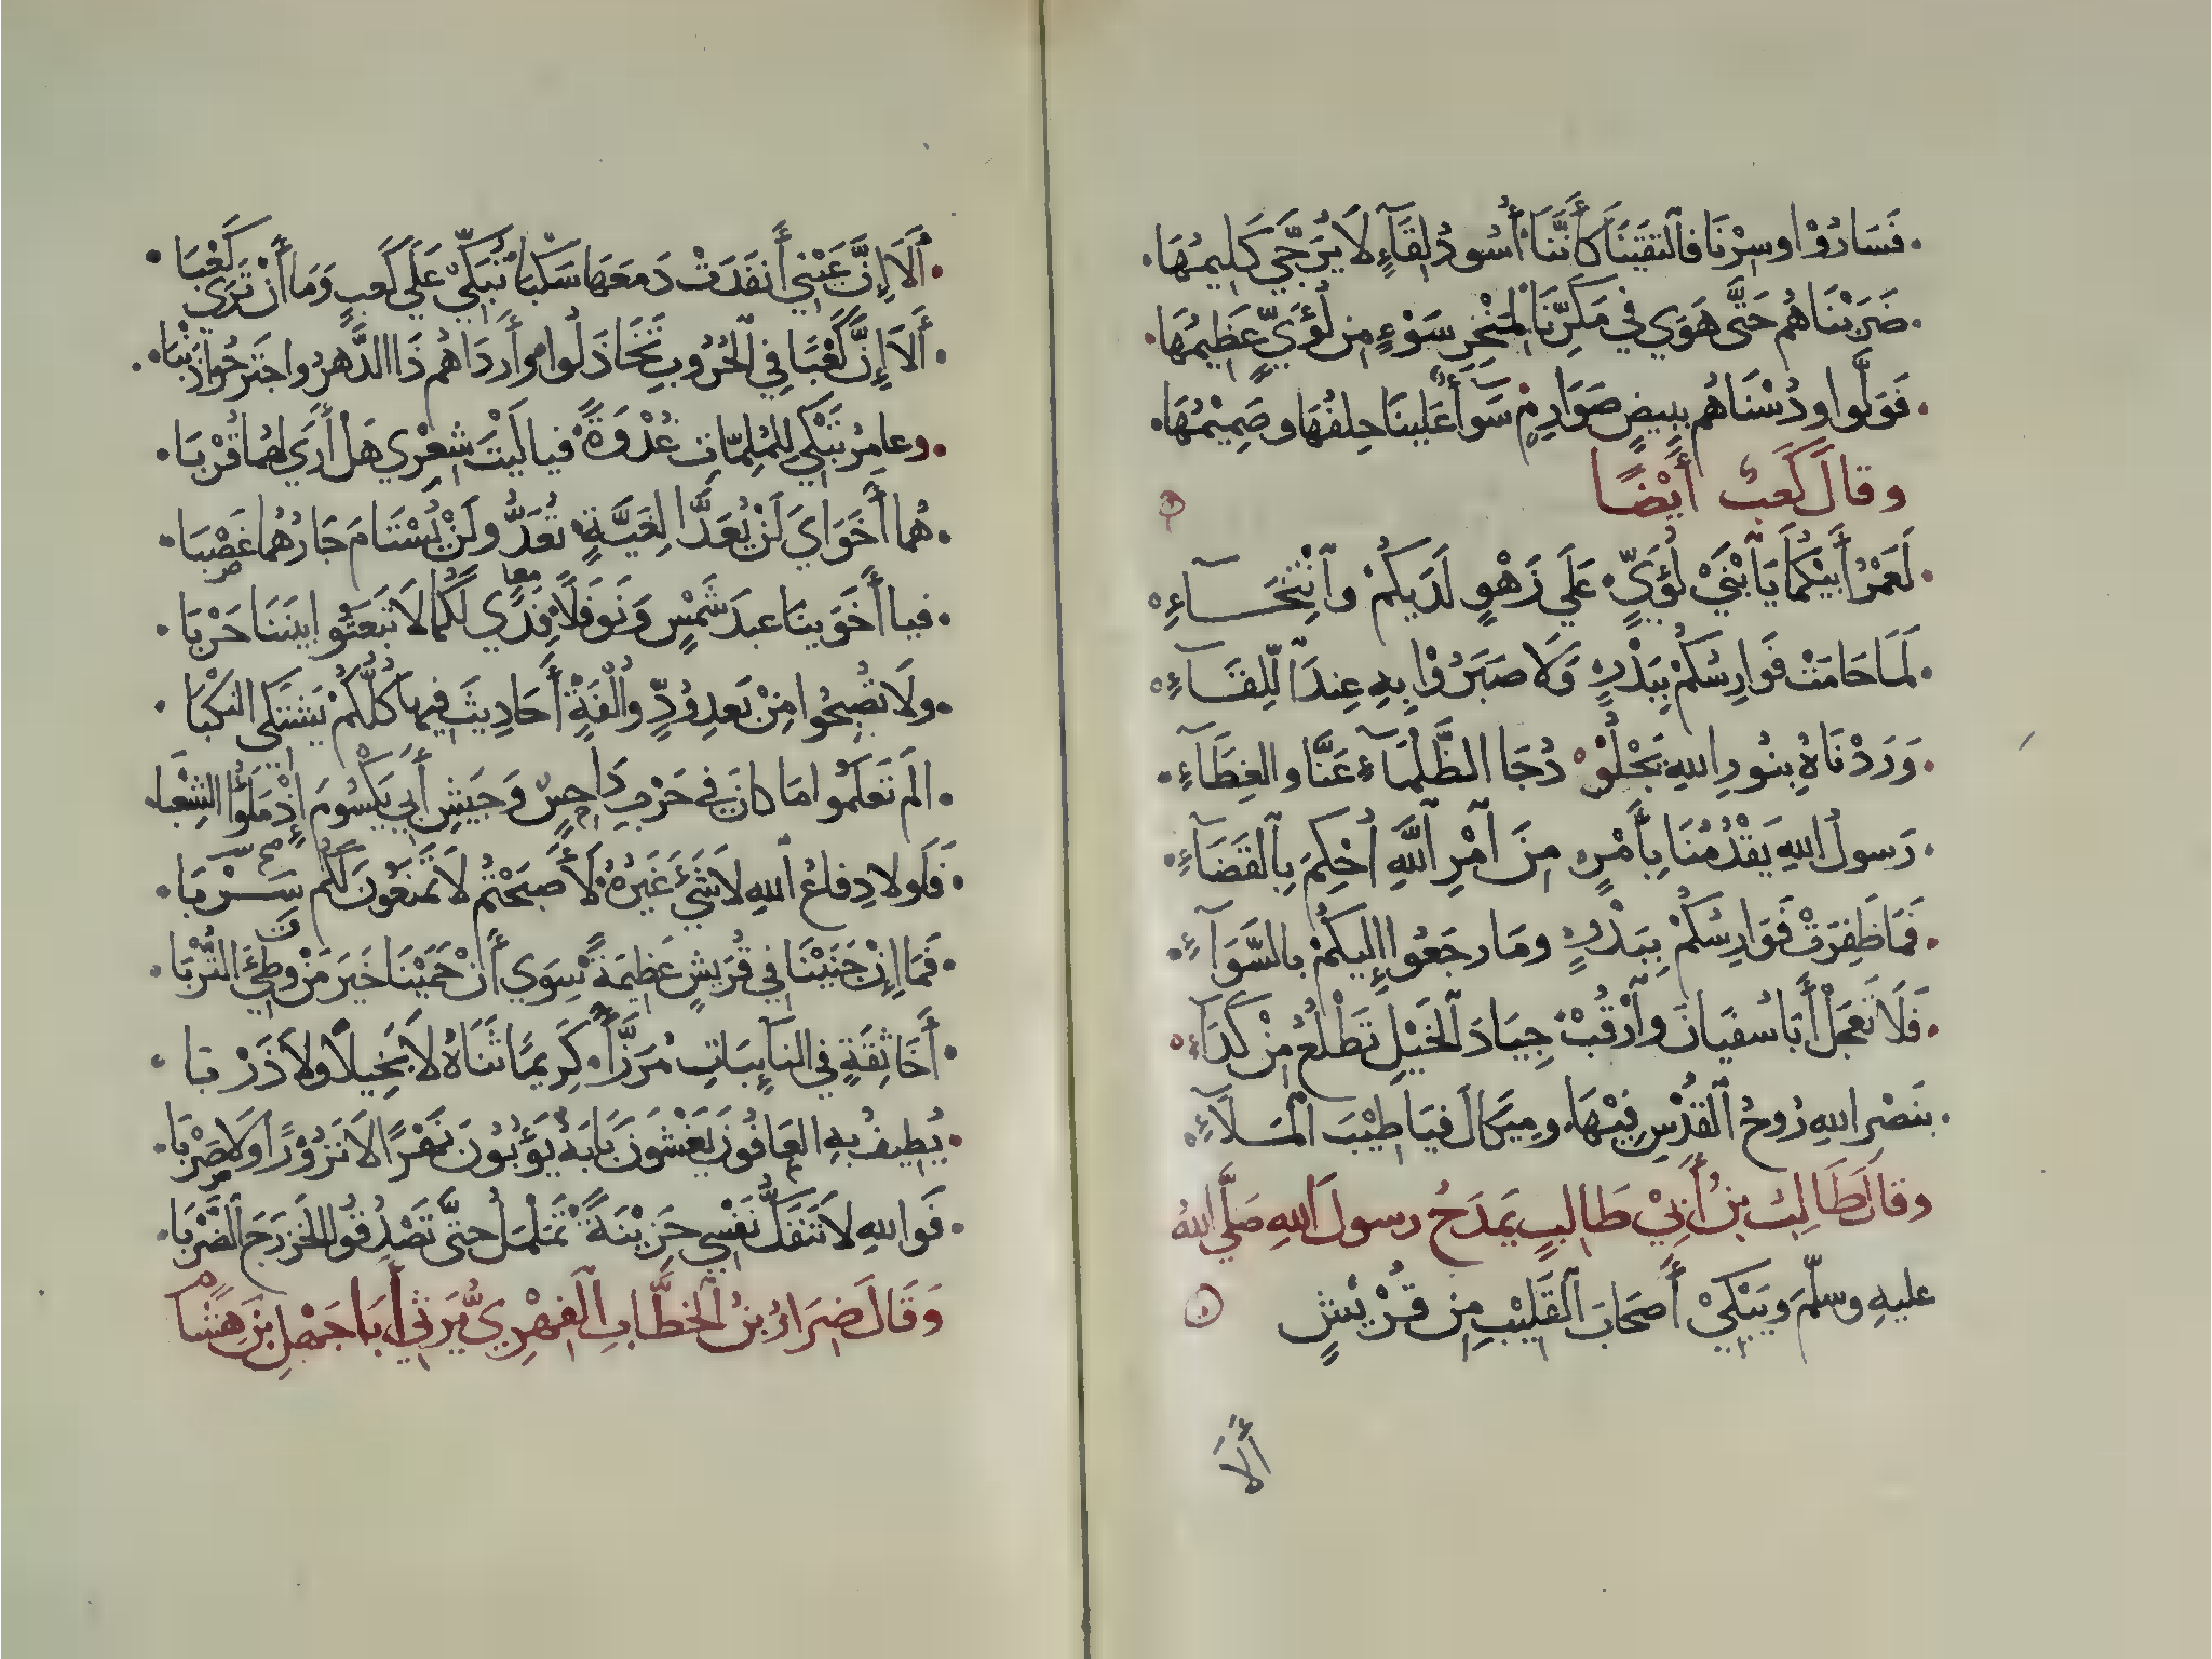 فَسَارُوْا وسِرْنَا فالتَقَيْنَا كَأَنَّنَا أُسُودُ لِقَآءٍ لَا يُرَجَّي كَلِيمُهَا
ضَرَبْنَاهُم حَتَّى هَوَي في مَكَرِّنَا لِمَنْخِرِ سَوْءٍ مِن لُؤَيٍّ عَظِيمُهَا
فَوَلَّوا ودُسْنَاهُم بِبِيضٍ صَوَارِمٍ سَوَآءٌ عَلَينَا حِلفُهَا وصَمِيْمُهَا
وقالَ كَعبٌ أَيْضًا
لَعَمْرُ أَبِيْكُمَا يَا بْنَيْ لُؤَيٍّ عَلَي زَهْوٍ لَدَيكُمْ وَانْتِخَآءِ
لَمَا حَامَتْ فَوَارِسُكُمْ بِبَدْرٍ وَلَا صَبَرُوْا بِهِ عِندَ اللِّقَآءِ
وَرَدْنَاهُ بِنُورِ اللهِ يَجْلُوْ دُجَا الظَّلْمَآءِ عَنَّا والغِطَآءِ
رَسولُ اللهِ يَقْدُمُنَا بِأَمْرٍ مِنَ آمْرِ اللَّهِ أُحْكِمَ بِالقَضَآءِ
فَمَا ظَفِرَتْ فَوَارِسُكُمْ بِبَدْرٍ ومَا رجَعُوا إِلَيكُمْ بالسَّوَآءِ
فَلَا تَعجَلْ أَبَا سُفيَانَ وارْقُبْ جِيَادَ الخَيْلِ تَطْلُعُ مِنْ كَدَآءِ
بنَصْرِ اللهِ رُوحُ القُدْسِ فِيْهَا ومِيكَالٌ فيَا طِيْبَ المَلَآءِ
وقالَ طَالِبُ بنُ أَبِيْ طَالبٍ يَمدَحُ رسولَ اللهِ صَلَّي اللهُ
عليهِ وسلّمَ ويَبْكِيْ أَصحَابَ القَلِيْبِ مِن قُرْيْشٍ
أَلَا
أَلَا إِنَّ عَيْنِي أَنفَدَتْ دَمعَهَا سَكْبَا تُبَكِّيْ عَلَي كَعبٍ وَمَا أَنْ تَرَى كَعْبَا
أَلَا إِنَّ كَعْبًا فِي الحُرُوبِ تَخَاذَلُوا وأَردَاهُم ذَا الدَّهرُ واجتَرَحُوا ذَنْبَا
وعامِرُ تَبْكِي لِلمُلِمّاتِ غُدْوَةً فيا لَيْتَ شِعْرِي هَل أَرَي لهُمَا قُرْبَا
هُما أَخَوَايَ لَنْ يُعَدَّا لِغَيَّةٍ تُعَدُّ ولَنْ يُسْتَامَ جَارُهُما غَصْبَا
فيا أَخَوَينَا عبدَ شَمْسٍ وَنَوفَلًا فِدًي لَكُما لَا تَبعَثُوا بينَنَا حَرْبَا
ولَا تُصبِحُوا مِنْ بَعدِ وُدٍّ وأُلْفَةٍ أَحَادِيثَ فيها كُلُّكُمْ يَشتَكِي النَكْبَا
الَم تَعلَمُوا مَا كانَ في حَرْبِ دَاحِسٍ وَجَيشِ أَبِي يَكسُومَ إِذْ مَلَؤُا الشِّعْبا
فَلَولَا دِفاعُ اللهِ لَا شَئَ غَيْرُهُ لَأَصبَحْتُمُ لَا تَمنَعُونَ لَكُم سَرْبَا
فَمَا إِنْ جَنَيْنَا فِي قُرَيشٍ عَظِيمَةً سِوَي أَنْ حَمَيْنَا خَيرَ مَنْ وَطِئَ التُّرْبَا
أَخَا ثِقَةٍ فِي النَائِبَاتِ مُرَزَّأً كَرِيمًا ثَنَاهُ لَا بَخِيلًا ولَا ذَرْبَا
يُطِيفُ بهِ العَافُونَ يَغشَونَ بَابَهُ يَؤُبُونَ نَهْرًا لَا نَزُوْرًا وَلَا صَرْبَا
فَواللهِ لَا تَنفَكُّ نَفْسِي حَزِيْنَةً تَمَلْمَلُ حتَّى تَصْدُقُوا الخَزرَجَ الضَّرْبَا
وَقَالَ ضِرَارُ بنُ الخطَّابِ الفِهْرِيُّ يَرثِي أَبَا جَهْلِ بنَ هِشَامٍ